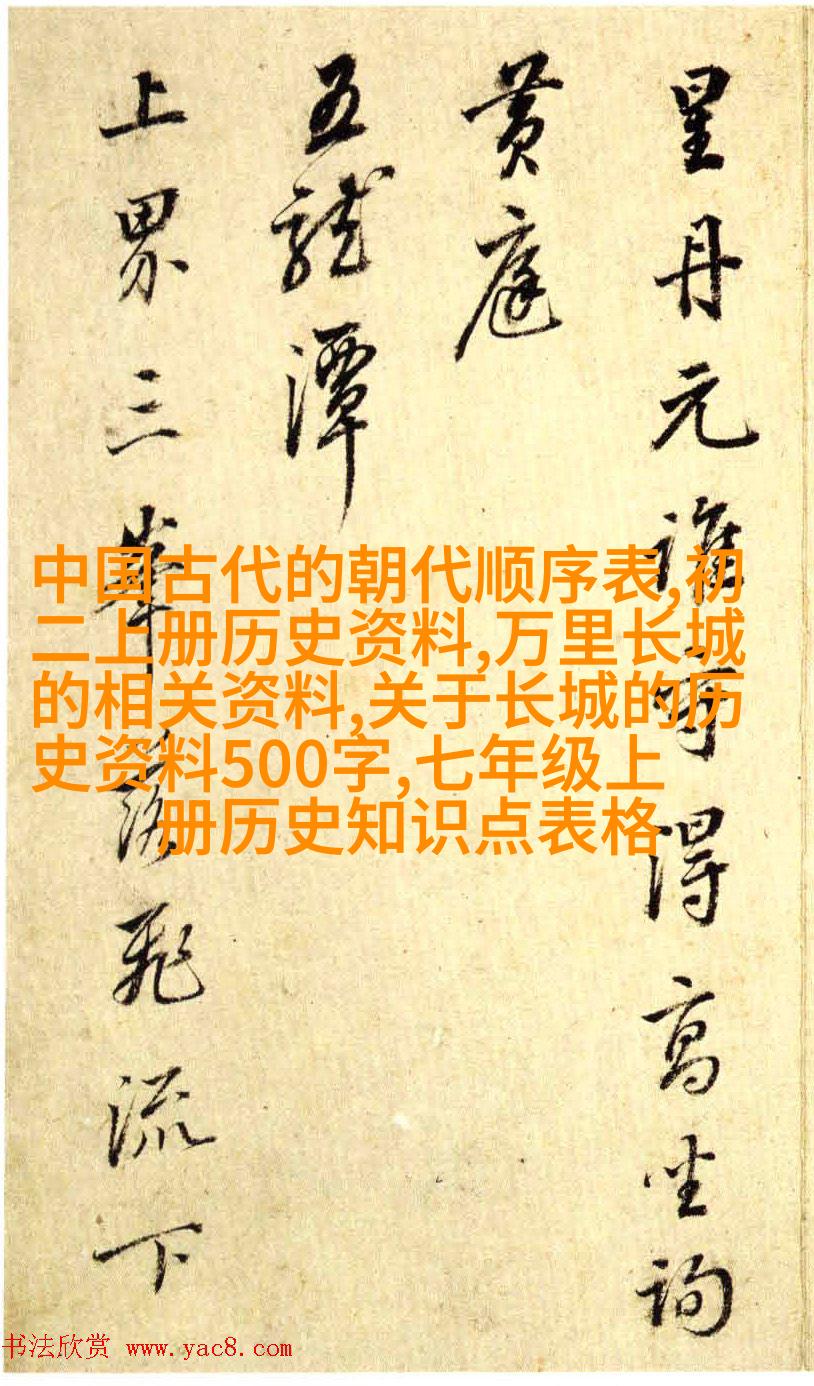 星丹元誰得高坐詢
黄庭
五龍潭
上界三峯飛流下
中国古代的朝代顺序表,初
二上册历史资料,万里长城
的相关资料,关于长城的历
史资料500字,七年级上
册历史知识点表格
书法欣赏 www.yac8.com